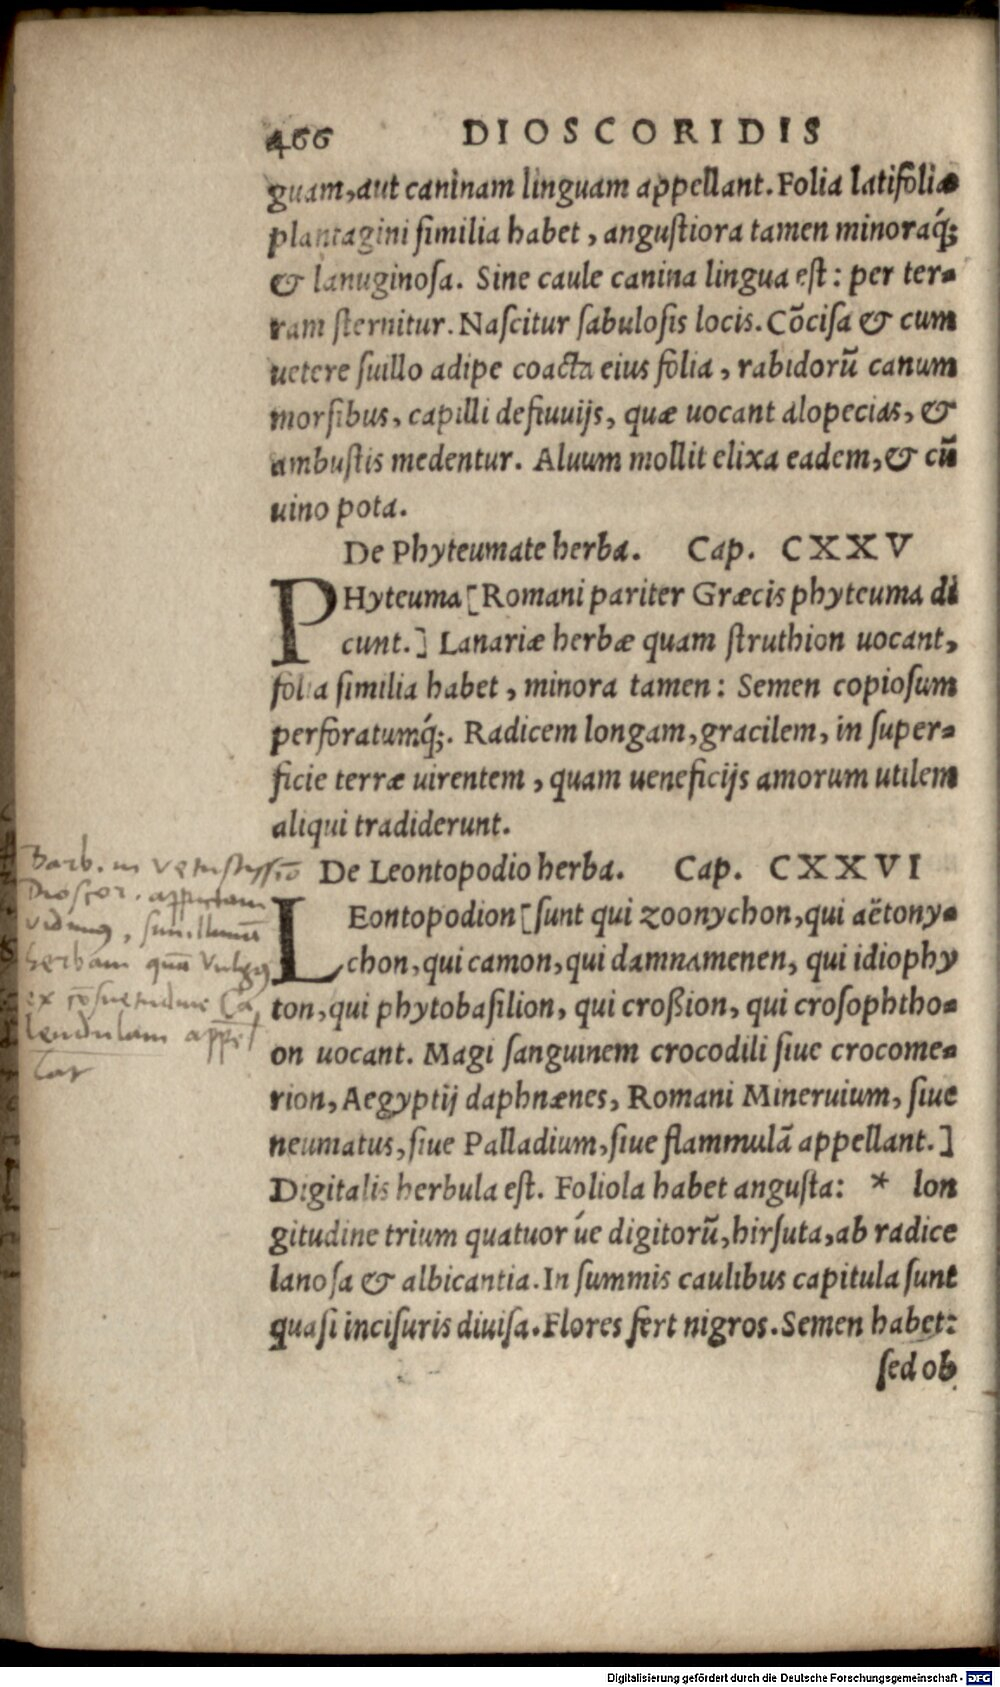 466 DIOSCORIDIS
guam, aut caninam linguam appellant. Folia latifoliæ
plantagini similia habet, angustiora tamen minoraq́;
& lanuginosa. Sine caule canina lingua est: per ter-
ram sternitur. Nascitur sabulosis locis. Cõcisa & cum
uetere suillo adipe coacta eius folia, rabidorũ canum
morsibus, capilli defluuijs, quæ uocant alopecias, &
ambustis medentur. Aluum mollit elixa eadem, & cũ
uino pota.
De Phyteumate herba. Cap. CXXV
PHyteuma [Romani pariter Græcis phyteuma di
cunt.] Lanariæ herbæ quam struthion uocant,
folia similia habet, minora tamen: Semen copiosum
perforatumq́;. Radicem longam, gracilem, in super-
ficie terræ uirentem, quam ueneficijs amorum utilem
aliqui tradiderunt.
De Leontopodio herba. Cap. CXXVI
LEontopodion [sunt qui zoonychon, qui aëtony-
chon, qui camon, qui damnamenen, qui idiophy
ton, qui phytobasilion, qui croßion, qui crosophtho-
on uocant. Magi sanguinem crocodili siue crocome-
rion, Aegyptij daphnænes, Romani Mineruium, siue
neumatus, siue Palladium, siue flammulã appellant.]
Digitalis herbula est. Foliola habet angusta: * lon
gitudine trium quatuor úe digitorũ, hirsuta, ab radice
lanosa & albicantia. In summis caulibus capitula sunt
quasi incisuris diuisa. Flores fert nigros. Semen habet:
sed ob
Barb. in vetustissõ
Dioscor.
vidimus, simillimũ
herbam quã vulgus
ex cõsuetudine Ca
lendulam appel
lat
Digitalisierung gefördert durch die Deutsche Forschungsgemeinschaft - DFG